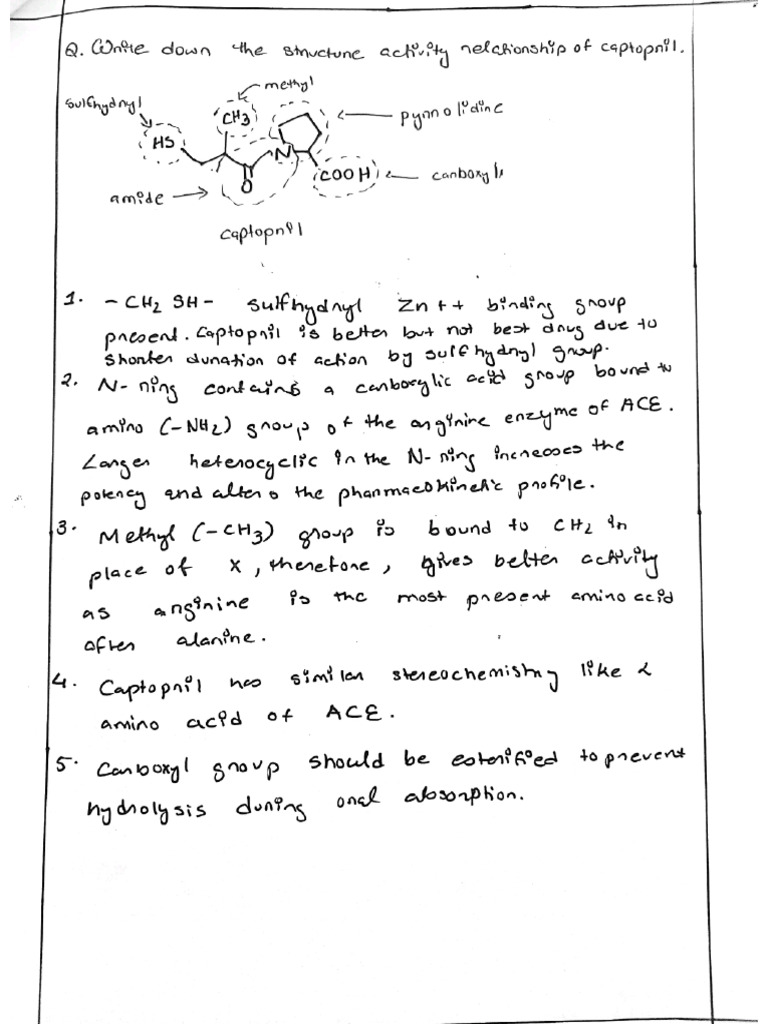 Q. Write down the structure activity relationship of captopril.
methyl
sulfhydryl
CH3
pyrrolidine
HS
N
COOH
carboxyl
O
amide
captopril
1. - CH2 SH - sulfhydryl Zn++ binding group
present. Captopril is better but not best drug due to
shorter duration of action by sulfhydryl group.
2. N- ring contains a carboxylic acid group bound to
amino (-NH2) group of the arginine enzyme of ACE.
Larger heterocyclic in the N-ring increases the
potency and alters the pharmacokinetic profile.
3. Methyl (-CH3) group is bound to CH2 in
place of X, therefore, gives better activity
as arginine is the most present amino acid
after alanine.
4. Captopril has similar stereochemistry like L
amino acid of ACE.
5. Carboxyl group should be esterified to prevent
hydrolysis during oral absorption.